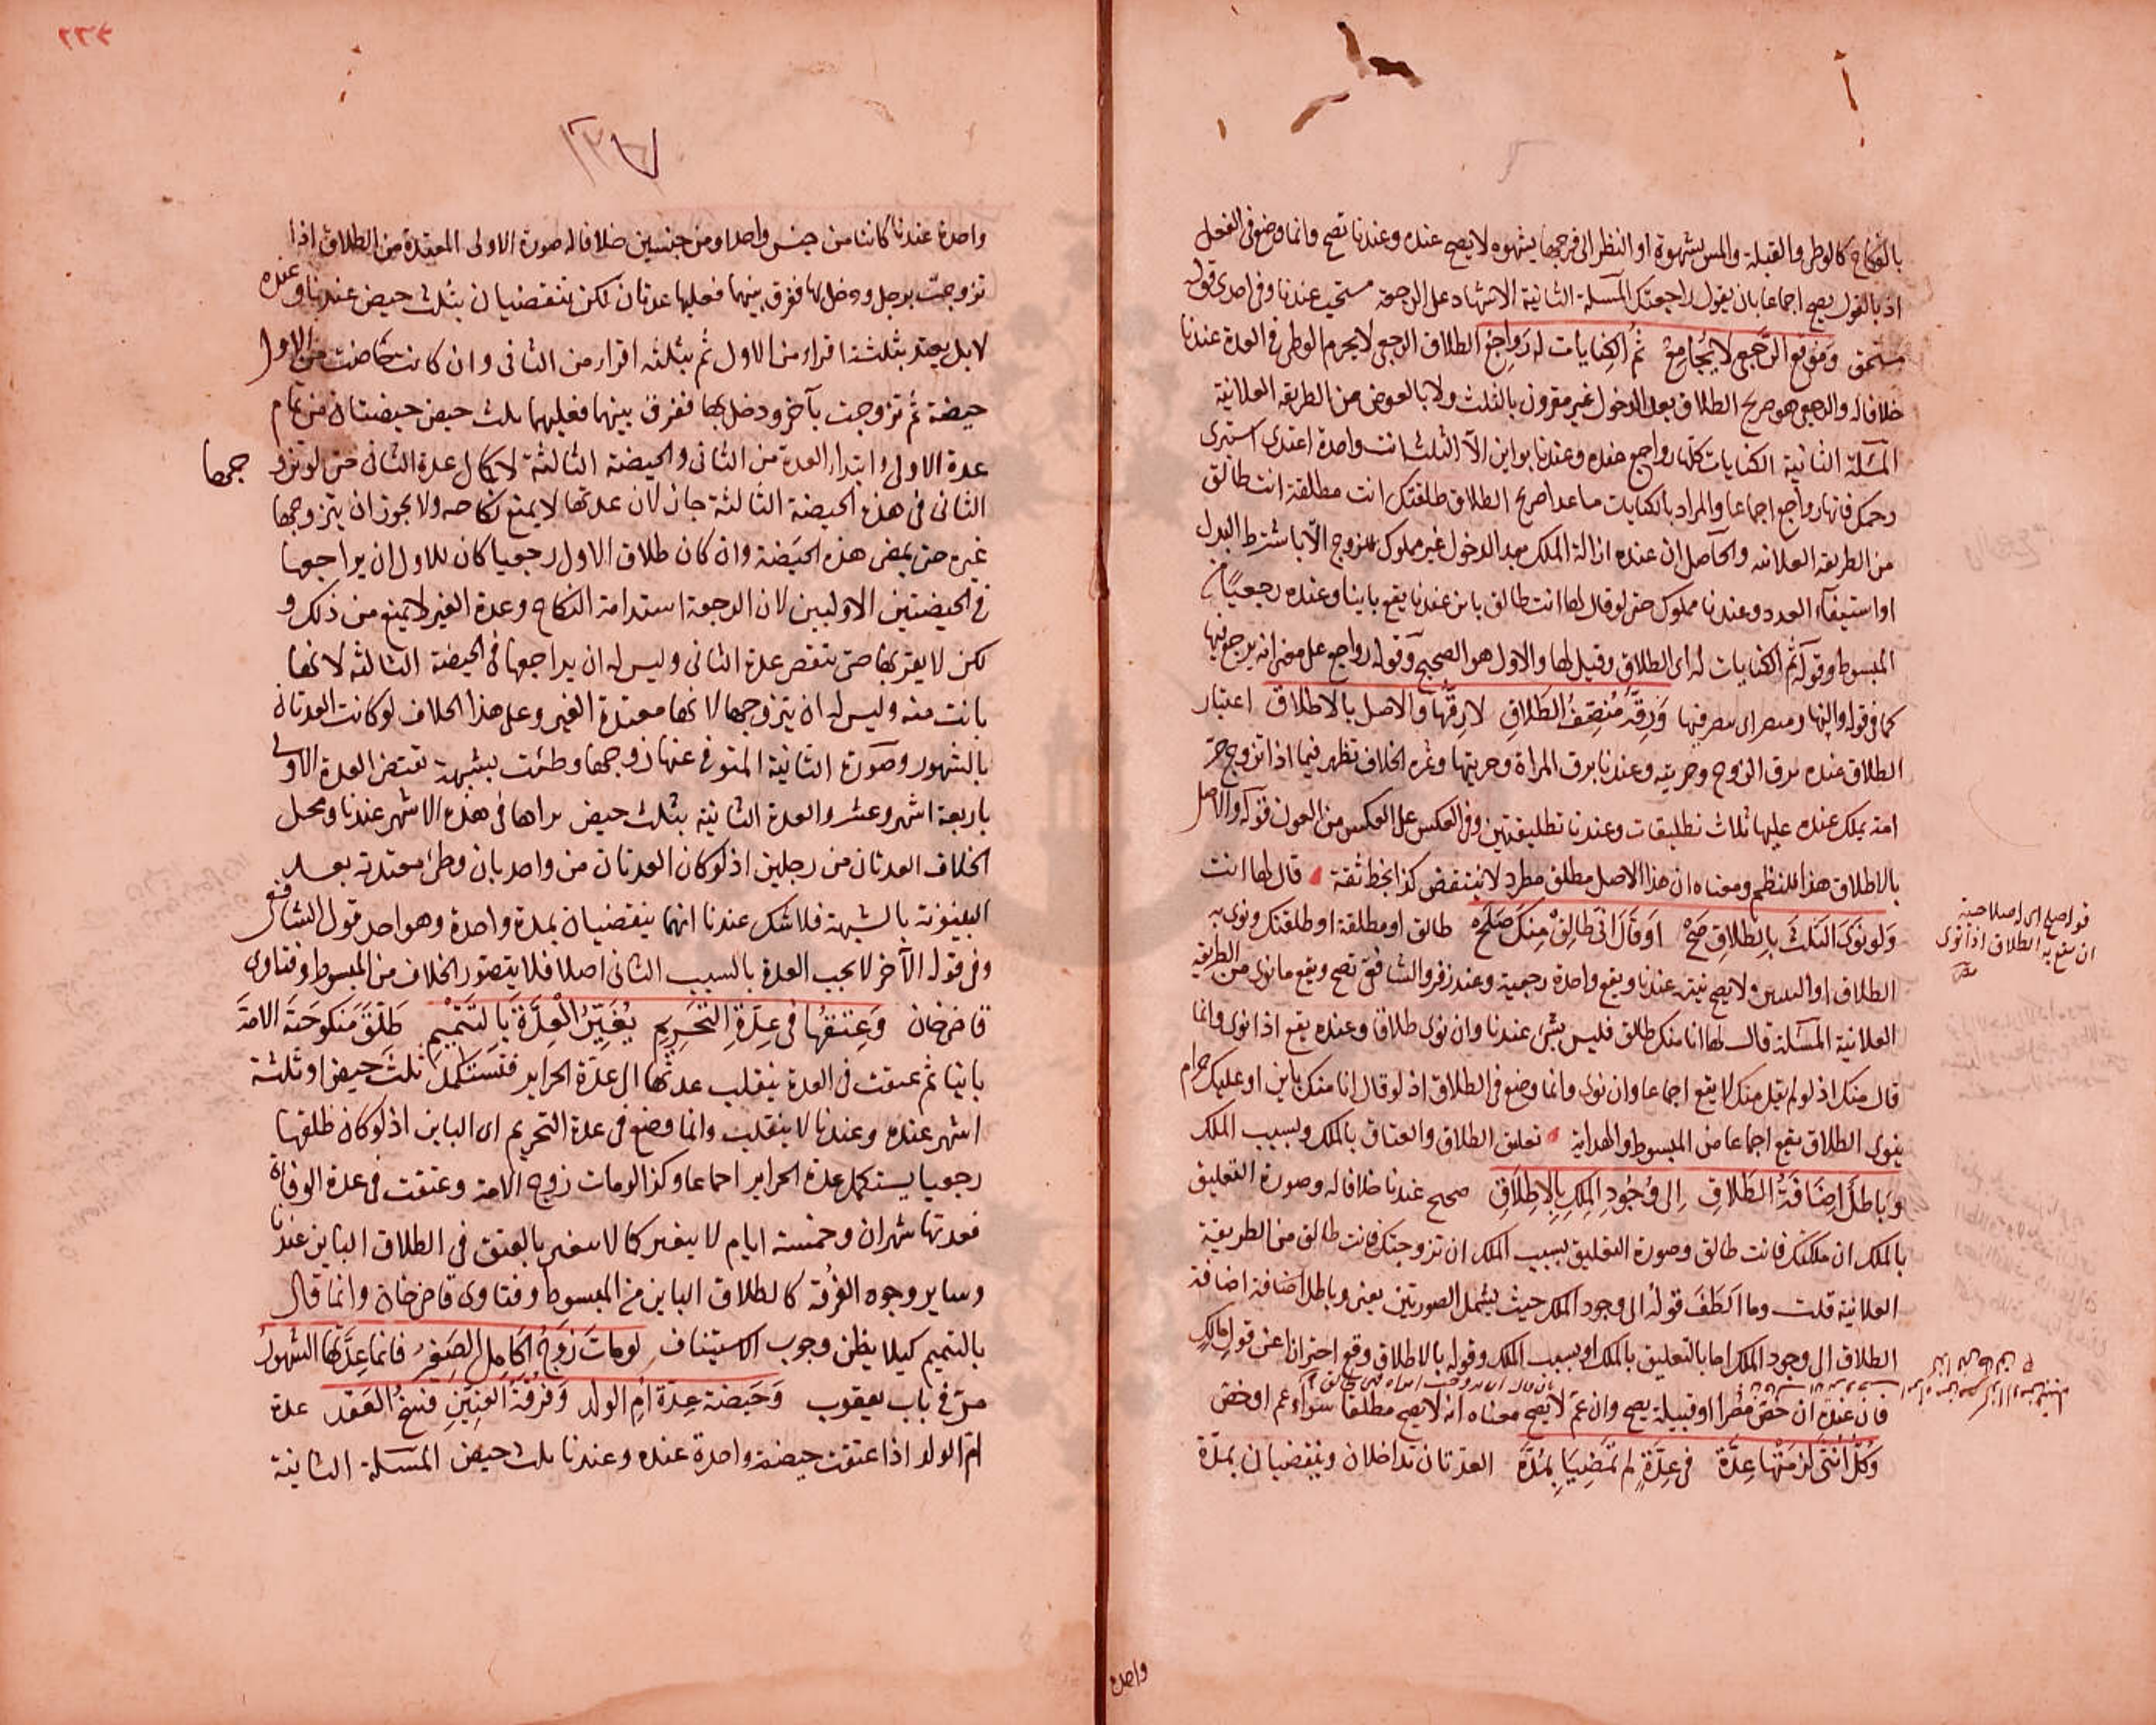 بالنكاح كالوطئ والقبلة والمس بشهوة او النظر الى فرجها بشهوه لا يصح عنده وعندنا تصح وانما وضع فى الفعل
اذ بالقول يصح اجماعا بان يقول راجعتك المسئلة الثانية الاشهاد على الرجعة مستحب عندنا وفى احدى قوليه
مستحق وموقع الرجعى لا يجامع ثم الكنايات له رواجع الطلاق الرجعى لا يحرم الوطى فى العدة عندنا
خلافا له والرجعى هو صريح الطلاق بعد الدخول غير مقرون بالثلث ولا بالعوض من الطريقه العلائية
المسئلة الثانية الكنايات كلها رواجع عنده وعندنا بواين الا الثلث انت واحدة اعتدى استبرى
رحمك فانها رواجع اجماعا والمراد بالكنايات ما عدا صريح الطلاق طلقتك انت مطلقة انت طالق
من الطريقه العلائيه والحاصل ان عنده ازالة الملك بعد الدخول غير مملوك للزوج الا باشترط البدل
او استيفآء العدد وعندنا مملوك حتى لو قال لها انت طالق باين عندنا يقع باينا وعنده رجعيا من
المبسوط وقوله ثم الكنايات له اى الطلاق وقيل لها والاول هو الصحيح وقوله رواجع على معنى انه يرجع فيها
كما فى قوله والنهار مبصرا اى مبصر فيها ورقه منصف الطلاق لا رقها والاصل بالاطلاق اعتبار
الطلاق عنده برق الزوج وحريته وعندنا برق المراة وحريتها وثمره الخلاف تظهر فيما اذا تزوج حر
امة يملك عنده عليها ثلاث تطليقات وعندنا تطليقتين وفى العكس على العكس من العون قوله والاصل
بالاطلاق هذا للنظم ومعناه ان هذا الاصل مطلق مطرد لا ينتقض كذا بخط ثقة قال لها انت
ولو نوى الثلث بالطلاق صح او قال انى طالق منك صلحه طالق او مطلقة او طلقتك ونوى به
الطلاق او الثنتين ولا يصح نيته عندنا ويقع واحدة رجعية وعند زفر والشافعى تصح ويقع ما نوى من الطريقه
العلائية المسئلة قال لها انا منك طالق فليس بشئ عندنا وان نوى طلاقا وعنده يقع اذا نوى وانما
قال منك اذ لو لم يقل منك لا يقع اجماعا وان نوى وانما وضع فى الطلاق اذ لو قال انا منك باين او عليك حرام
ينوى الطلاق يقع اجماعا من المبسوط والهداية تعليق الطلاق والعتاق بالملك وبسبب الملك
وباطل اضافة الطلاق الى وجود الملك بالاطلاق صحيح عندنا خلافا له وصورة التعليق
بالملك ان ملكتك فانت طالق وصورة التعليق بسبب الملك ان تزوجتك فانت طالق من الطريقية
العلائية قلت وما الطف قوله الى وجود الملك حيث يشمل الصورتين يعنى وباطل اضافة اضافة
الطلاق الى وجود الملك اما بالتعليق بالملك او بسبب الملك وقوله بالاطلاق وقع احترازا عن قول مالك
فان عنده ان خص مصرا او قبيلة يصح وان عم لا يصح معناه انه لا يصح مطلقا سواء عم او خص
وكل انثى لزمتها عدة فى عدة لم تمضيا بمدة العدتان تداخلان وينقضيان بمدة
قوله صلح اى له صلاحية
ان يقع به الطلاق اذا نوى
واحدة
واحدة عندنا كانتا من جنس واحد او من جنسين خلافا له صورة الاولى المعتدة من الطلاق اذا
تزوجت برجل ودخل بها ففرق بينهما فعليها عدتان لكن تنقضيان بثلث حيض عندنا وعنده
لا بل يعتد بثلثة اقراء من الاول ثم بثلثه اقراء من الثانى وان كانت حاضت من الاول
حيضة ثم تزوجت بآخر ودخل بها ففرق بينهما فعليها ثلث حيض حيضتان من تمام
عدة الاولى وابتداء العدة من الثانى والحيضة الثالثة لاكمال عدة الثانى حتى لو تزو
جها
الثانى فى هذه الحيضة الثالثة جاز لان عدتها لا يمنع نكاحه ولا يجوز ان يتزوجها
غيره حتى يمضى هذه الحيضة وان كان طلاق الاول رجعيا كان للاول ان يراجعها
فى الحيضتين الاوليين لان الرجعة استدامة النكاح وعدة الغير لا يمنع من ذلك و
لكن لا يقربها حتى تنقضى عدة الثانى وليس له ان يراجعها فى الحيضة الثالثه لانها
بانت منه وليس له ان يتزوجها لانها معتدة الغير وعلى هذا الخلاف لو كانت العدتان
بالشهور وصورة الثانية المتوفى عنها زوجها وطئت بشبهة تقتضى العدة الاولى
باربعة اشهر وعشر والعدة الثانية بثلث حيض تراها فى هذه الاشهر عندنا ومحل
الخلاف العدتان من رجلين اذ لو كان العدتان من واحد بان وطئ معتدته بعد
البينونة بالشبهة فلا شك عندنا انهما ينقضيان بمدة واحدة وهو احد قول الشافعى
وفى قوله الآخر لا يجب العدة بالسبب الثانى اصلا فلا يتصور الخلاف من المبسوط وفتاوى
قاضى خان وعتقها فى عدة التحريم يغير العدة بالتتميم طلق منكوحته الامة
باينا ثم عتقت فى العدة ينقلب عدتها الى عدة الحراير فتستكمل ثلث حيض او ثلثة
اشهر عنده وعندنا لا ينقلب وانما وضع فى عدة التحريم اى الباين اذ لو كان طلقها
رجعيا يستكمل عدة الحراير اجماعا وكذا لو مات زوج الامة وعتقت فى عدة الوفاة
فعدتها شهران وخمسة ايام لا يتغير كما لا يتغير بالعتق فى الطلاق الباين عندنا
وساير وجوه الفرقة كالطلاق الباين من المبسوط وفتاوى قاضى خان وانما قال
بالتتميم كيلا يظن وجوب الاستيناف لو مات زوج الحامل الصغير فانما عدتها الشهور
مر فى باب يعقوب وحيضة عدة ام الولد وفرقة العنين فسخ العقد عدة
ام الولد اذا عتقت حيضة واحدة عنده وعندنا ثلث حيض المسئلة الثانية